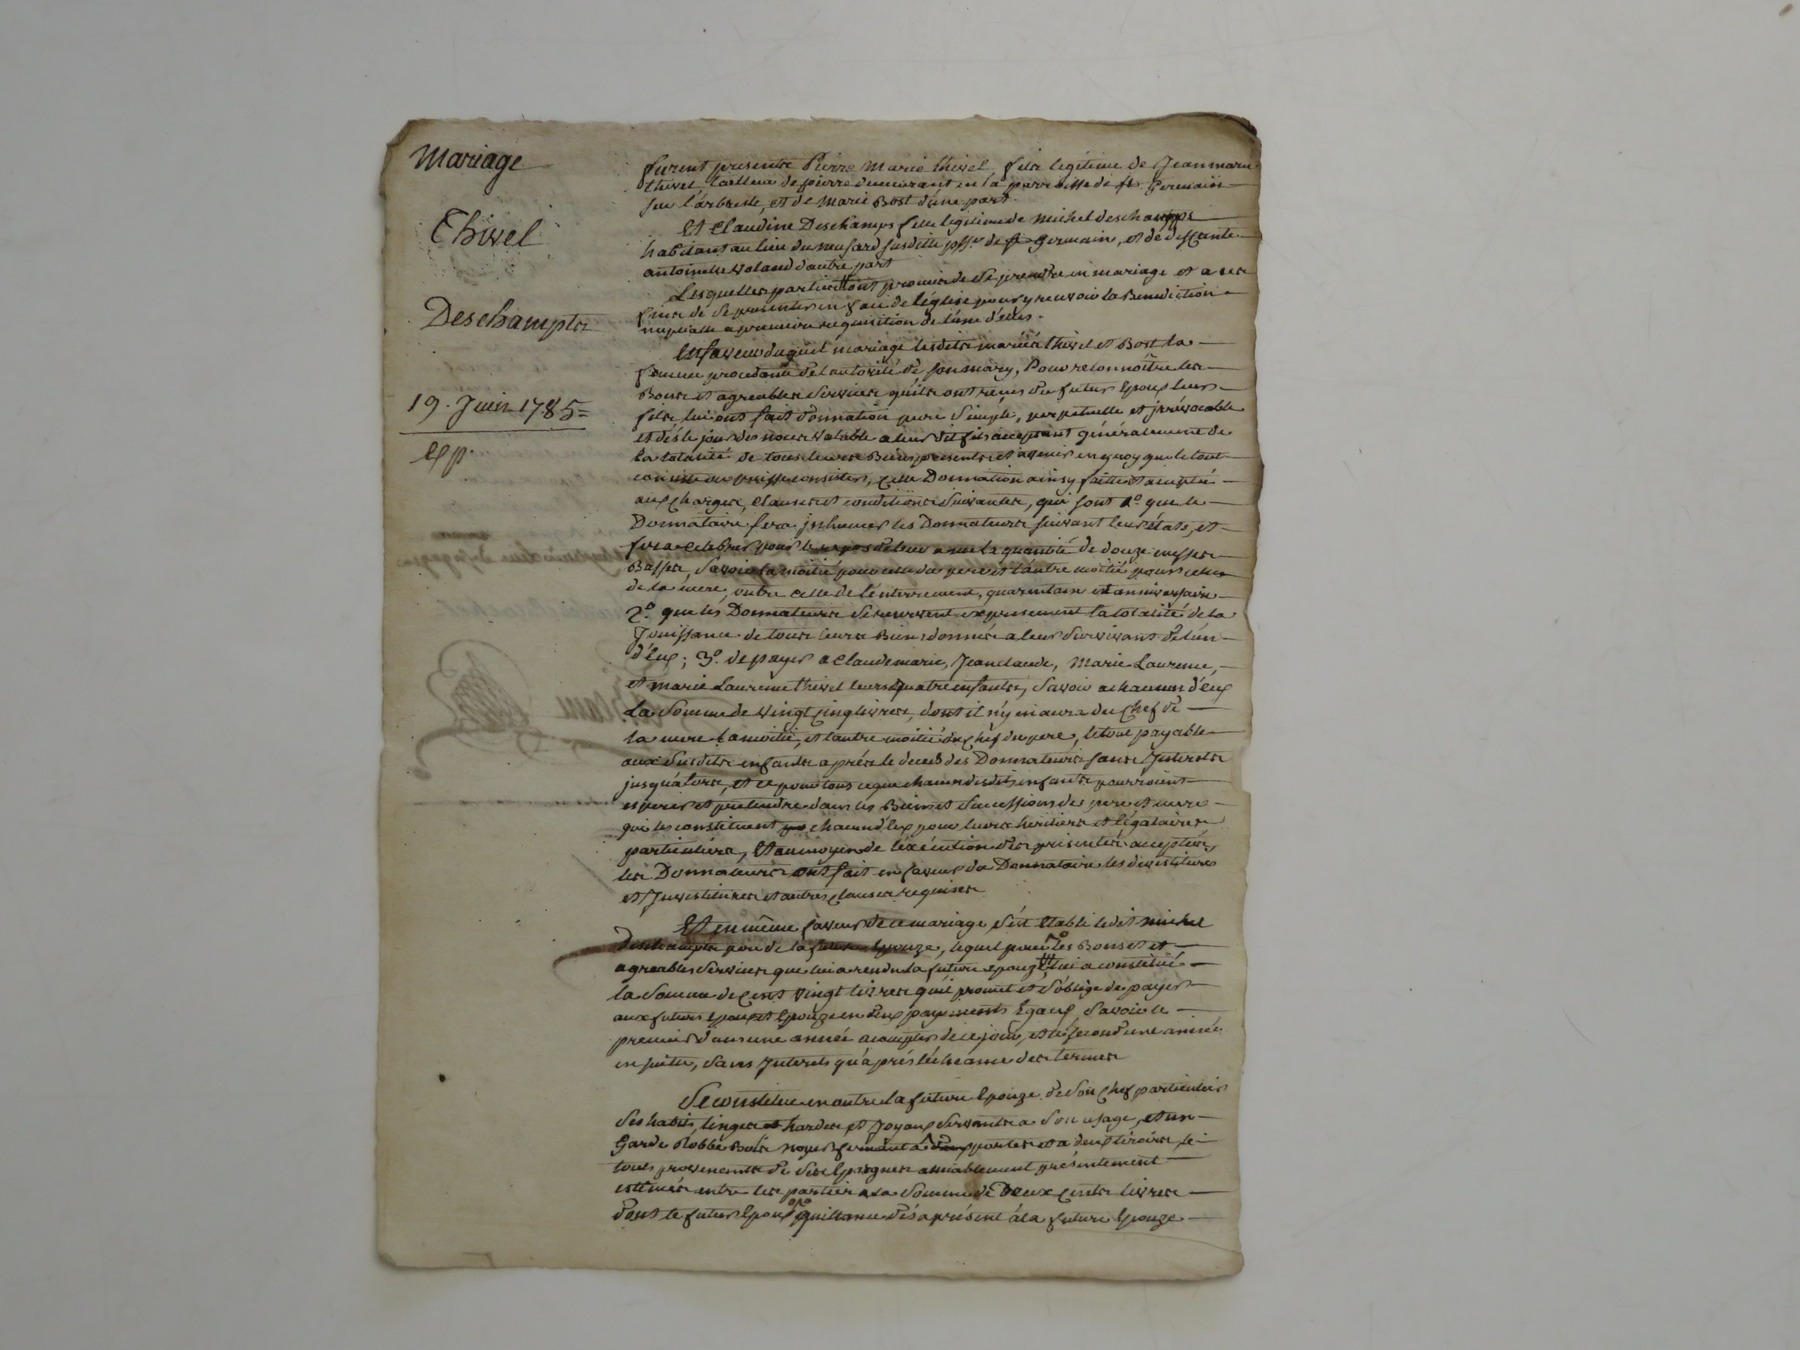 Mariage
Thivel
Deschamptes
19. Juin 1785=
Exp.
furent presents Pierre Marie thivel, fils legitime de Jean marie
thivel tailleur de pierre demeurant en la parroisse de st. Germain
sur l'arbresle, et de Marie Bost d'une part.
Et Claudine Deschamps fille legitime de Michel deschamps
habitant au lieu du musard susditte psse. de st germain, et de deffunte
antoinette voland d'autre part
Lesquelles parties ont promis de se prendre en mariage et a ces
fins de se presenter en face de l'église pour y recevoir la Benediction
nuptialle a premiere requisition de l'une d'elles.
En faveur duquel mariage lesdits mariés thivel et Bost la
femme procedante de l'autorité de son mary, Pour reconnoître les
Bons et agreables services qu'ils ont reçus du futur Epoux leur
fils lui ont fait Donnation pure simple, perpetuelle et jrrévocable
et dés le jour des noces valable a leur dit fils acceptant généralement de
la totalité de tous leurs Biens presents et avenir en quoy que le tout
consiste ou puisse consister, cette Donnation ainsy faitte et acceptée
aux charges, clauses et conditions suivantes, qui sont 1o. que le
Donnataire fera jnhumer les Donnateurs suivant leur état, et
fera celebrer pour le repos de leur ame la quantité de douze messes
Basses, savoir la moitié pour celle du pere et l'autre moitié pour celle
de la mere, outre celle de l'enterrement, quarantain et anniversaire
2o. que les Donnateurs se reservent expressement la totalité de la
Jouissance de tous leurs Biens donnés a leur survivant de l'un
d'eux; 3o. de payer a Claudemarie, Jeanclaude, Marie Laurence,
et marie Laurence thivel leurs quatre enfants, savoir a chacun d'eux
La somme de vingt cinq livres, dont il n'y en aura du chef de
la mere la moitié, et l'autre moitié du chef du pere, le tout payable
aux susdits enfants aprés le decés des Donnateurs sans Jnterets
jusqu'alors, et ce pour tous ce que chacun desdits enfants pourroient
esperer et pretendre dans les Biens et successions des pere et mere
qui les constituent chacun d'eux pour leurs heritiers et légataires
particuliers, Et au moyen de l'éxécution des presentes acceptées,
les Donnateurs ont fait en faveur du Donnataire les devestitures
et Jnvestitures et autres clauses requises
Et en même faveur de ce mariage s'est établi ledit michel
Deschamps pere de la future Epouze, lequel pour les Bons et et
agreables services que lui a rendu la future epouze, lui a constitué
la somme de cent vingt livres qu'il promet et s'oblige de payer
aux futurs epoux et Epouze en deux payements Egaux, savoir le
premier dans une année a compter de ce jour, et le second une année
en suitte, sans Jnterets qu'aprés l'écheance des termes
Se constitue en outre la future Epouze de son chef particulier
ses habits, linges et hardes et Joyaux servants a son usage, et un
Garde Robbe Bois noyer fermant a deux portes et a deux tiroirs, le
tous provenants de ses Epargnes amiablement présentement
estimés entre les parties a la somme de Deux cents livres
Dont le futur Epoux quittance dés a présent a la future Epouze